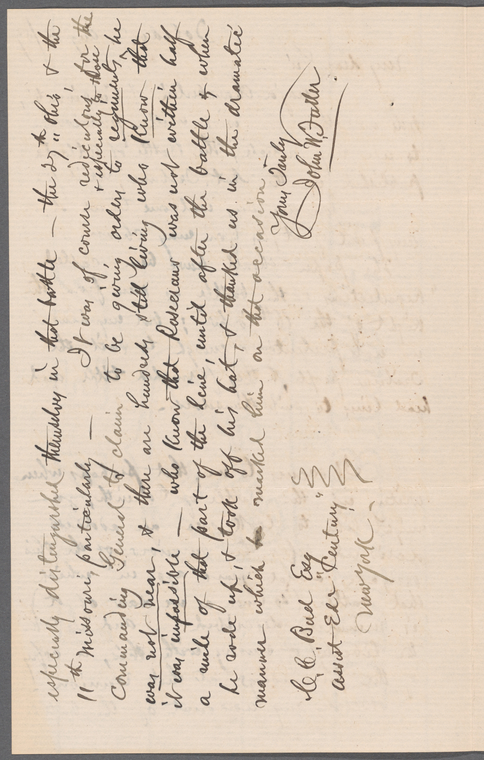 especially distinguished themselves in that battle — the 27th Ohio & the
11th Missouri, particularly — It was of course rediculous for the
& especially to those
Commanding General to claim to be giving orders to regiments, he
was not near, & there are hundreds still living who know that
it was impossible — who know that Rosecrans was not within half
a mile of that part of the line until after the battle & when
he rode up, & took off his hat, & thanked us in the dramatic
manner which marked him on that occasion.
Yours Truly
John W. Fuller
C. C. Buel Esq
Assist Edr "Century"
New York